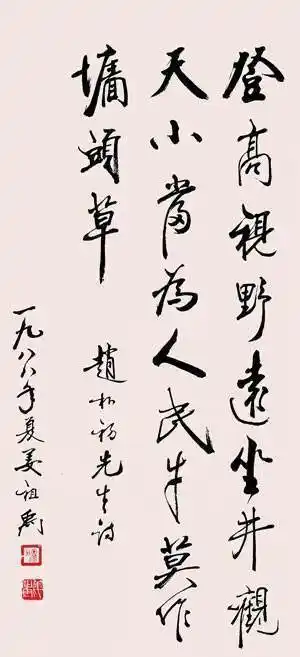 登高視野遠坐井觀
天小當為人民牛莫作
墻頭草
趙朴初先生詩
一九八八年夏姜祖禹